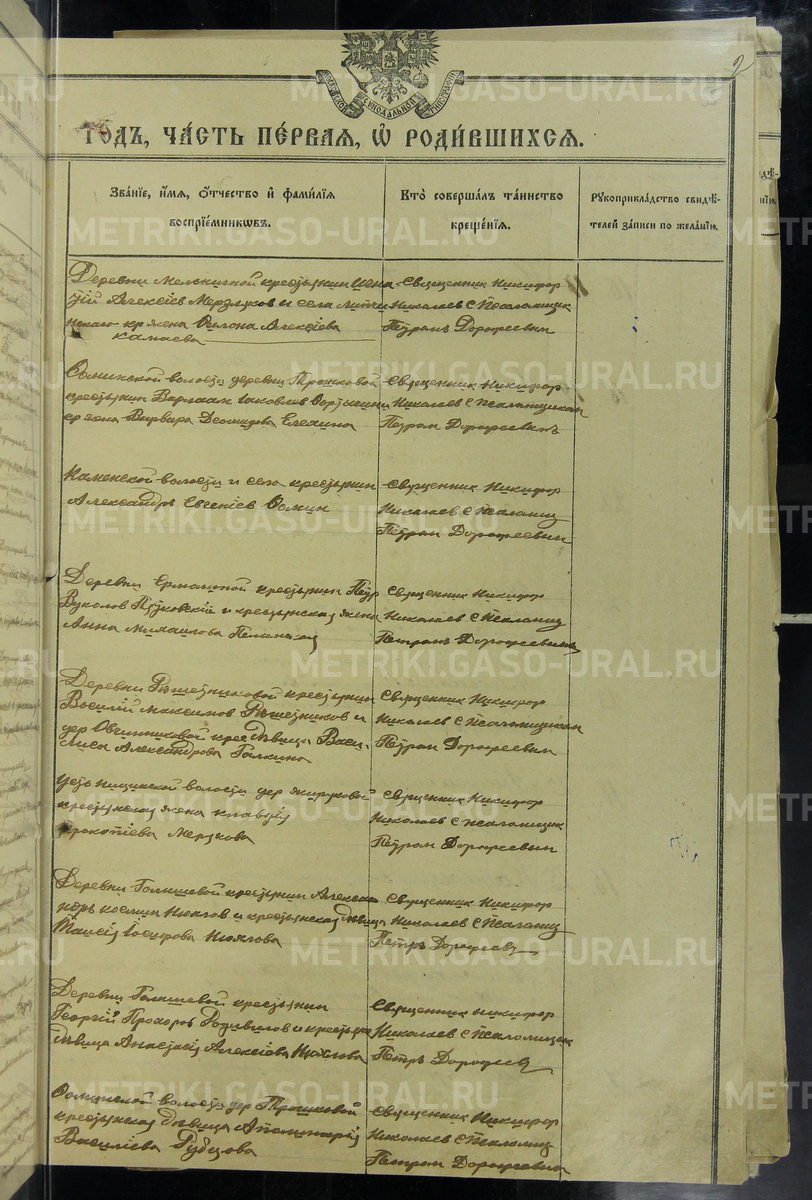 2
годъ, часть пе́рвая, ѡ҆ роди́вшихся.
Зва́нїе, и҆́мя, ѻ҆́тчество и҆ фами́лїя
воспрїе́мникѡвъ.
Кто̀ соверша́лъ та́инство
креще́нїя.
Рꙋкоприкла́дство свидѣ́-
телей за́писи по жела́нїю.
Деревни Мельничной крестьянин
Алексѣев Мерзляков и села
жена Алексѣева
камаева
Священник Никифор
Николаев с Псаломщик
Петром Дорофеевым
волости деревни Трошковой
крестьянин Варлаам Іаковлев
кр жена Варвара Деомидова Елехина
Священник Никифор
Николаев с Псаломщиком
Петром Дорофеевым
Каменской волости и села крестьянин
Александръ Евгеніев Фомин
Священник Никифор
Николаев с Псаломщ
Петром Дорофеевым
Деревни Ермолиной крестьянин Петр
Вуколов и крестьянская жена
Анна
Священник Никифор
Николаев с Псаломщ
Петромъ Дорофеевымъ
Деревни Рѣшетниковой крестьянин
Василій Максимов Рѣшетников и
дер Овчинниковой крес дѣвица Васи
лиса Александрова Галкина
Священник Никифор
Николаев с Псаломщиком
Петром Дорофеевым
Усть Ницинской волости дер
крестьянская жена Клавдія
Прокопіева
Священник Никифор
Николаев с Псаломщик
Петром Дорофеевым
Деревни Голышевой крестьянин Алексан
дръ Козмин и крестьянская дѣвица
Таисія Іосифова
Священник Никифор
Николаев с Псаломщ
Петръ Дорофеев
Деревни Голышевой крестьянин
Георгій Прохоръ Родивилов и крестьян
дѣвица Анастасія Алексіева
Священник Никифор
Николаев с Псаломщик
Петръ Дорофеев
волости дер Трошковой
крестьянская дѣвица Аполинарія
Василіева Рубцова
Священник Никифор
Николаев с Псаломщ
Петром Дорофеевым
METRIKI.GASO-URAL.RU